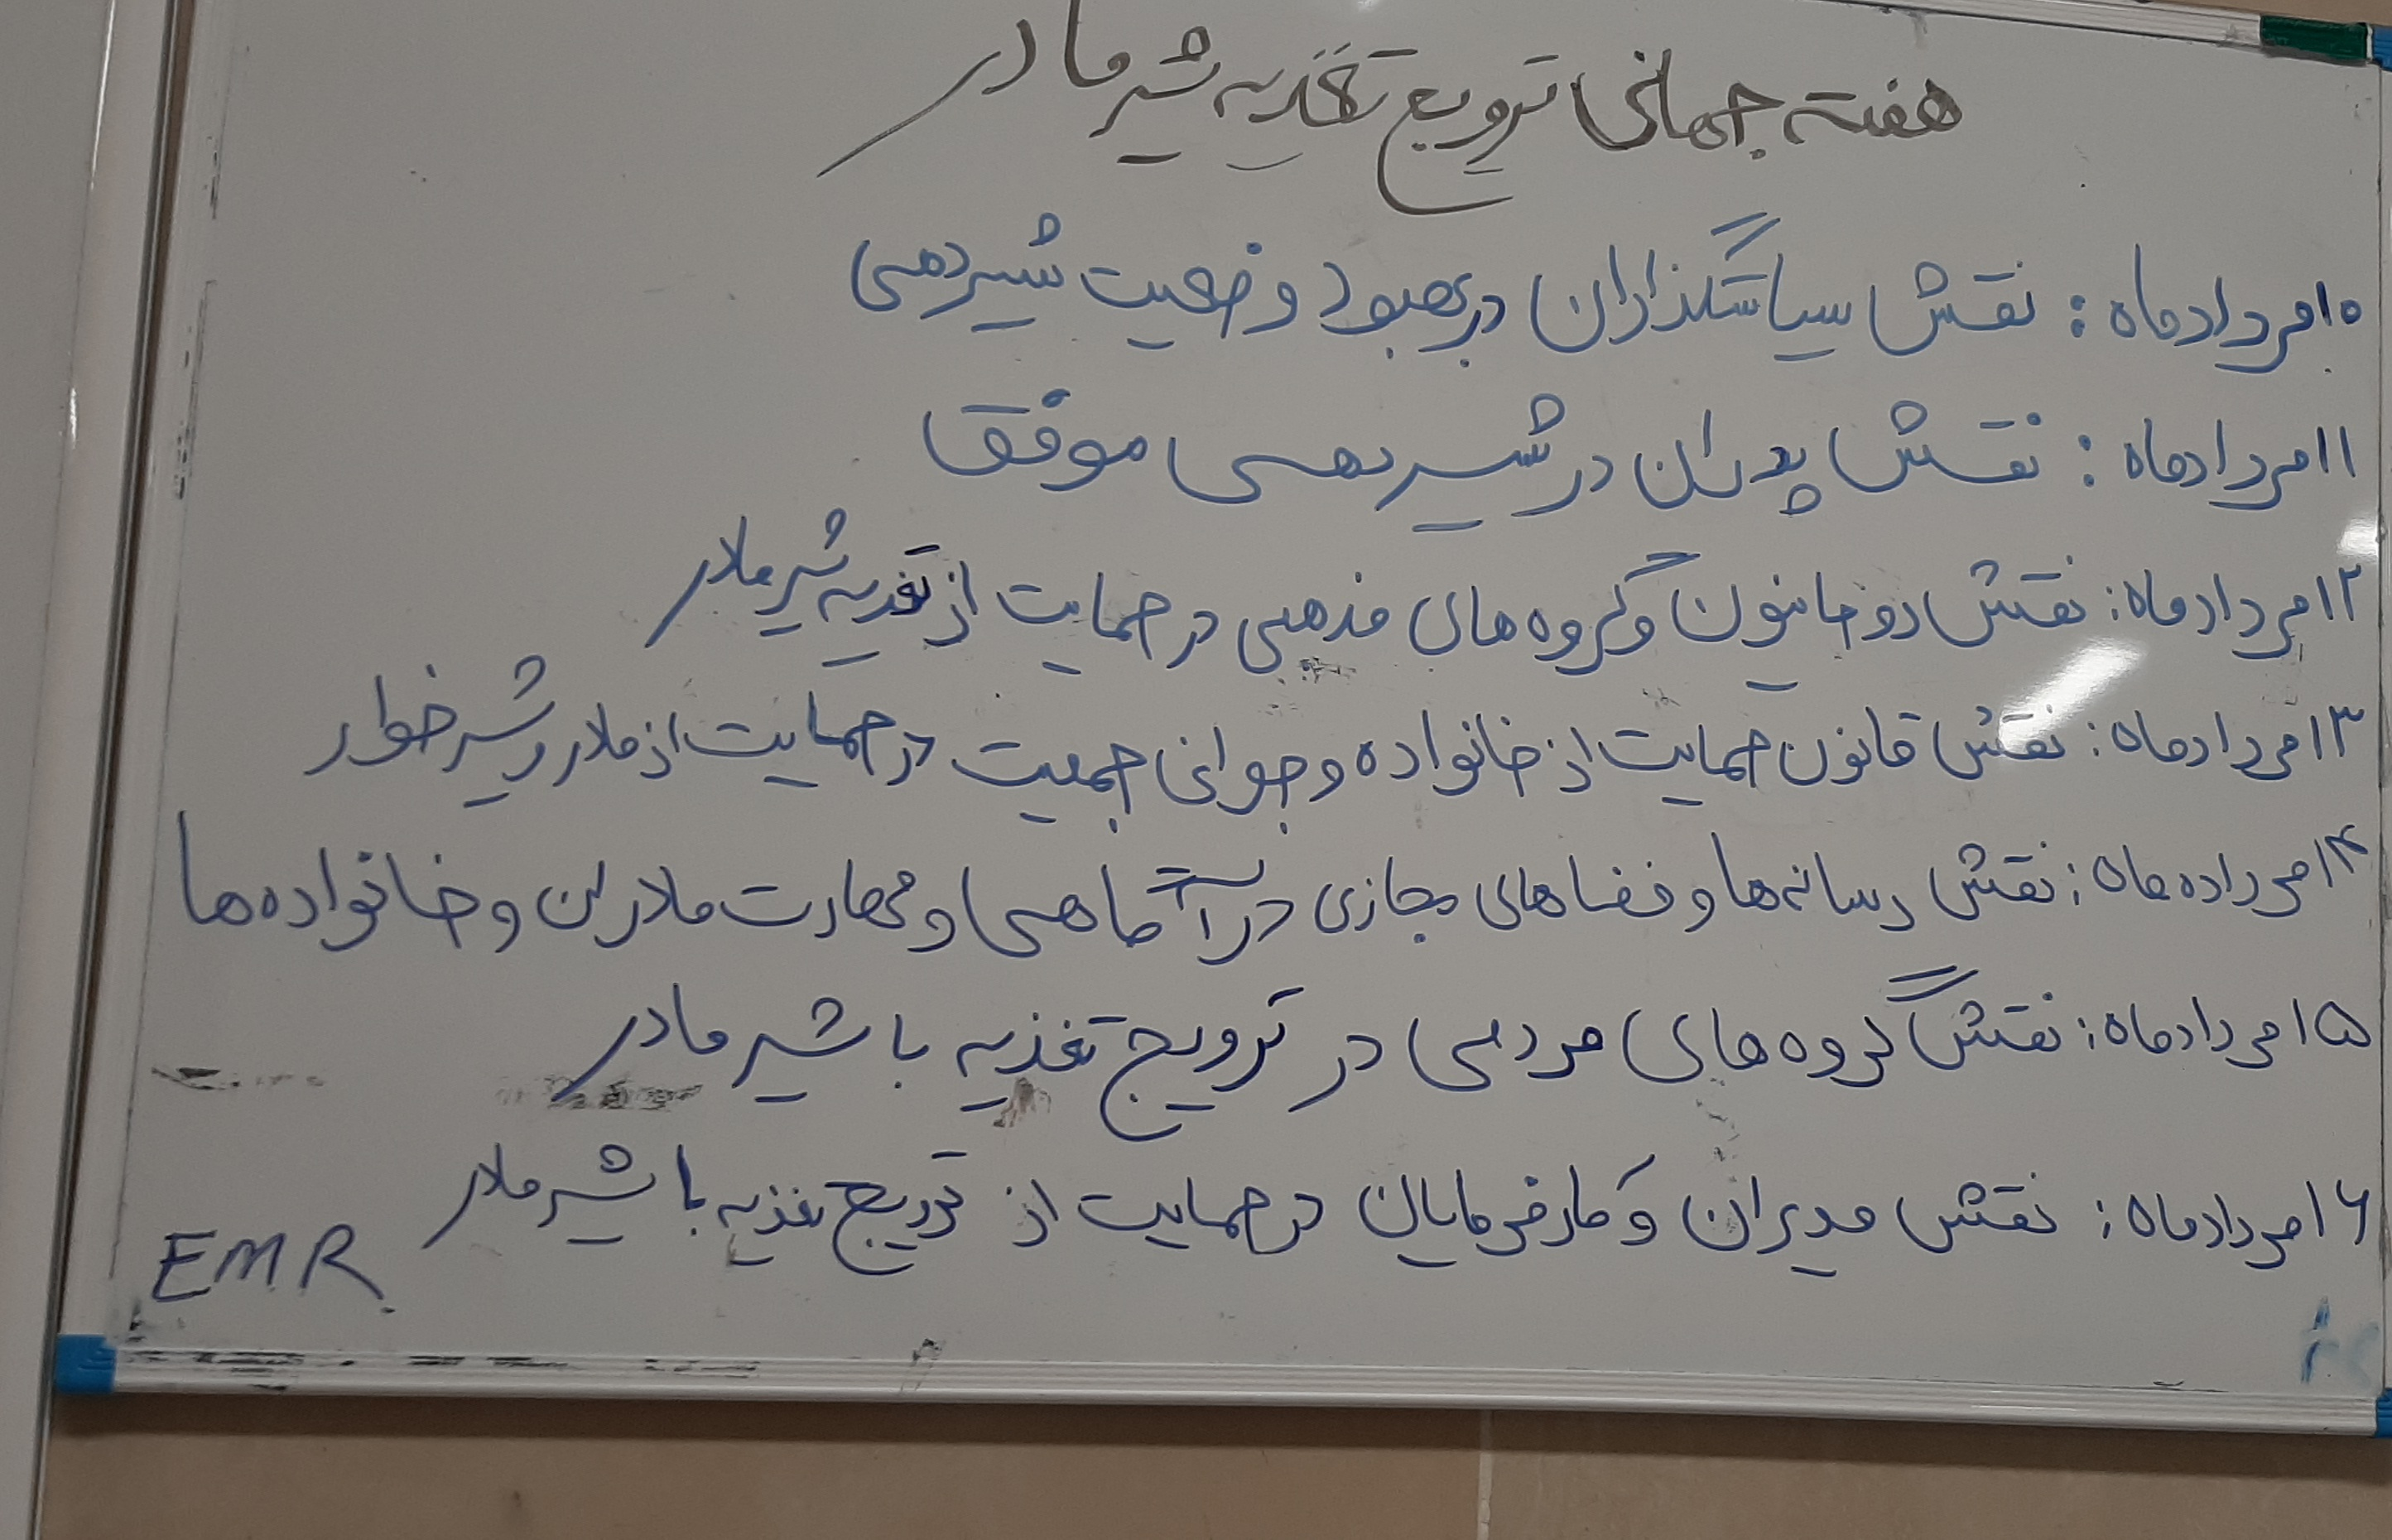 هفته جهانی ترویج تغذیه شیر مادر
۱۰مرداد ماه : نقش سیاستگذاران در بهبود وضعیت شیردهی
۱۱مرداد ماه : نقش پدران در شیردهی موفق
۱۲مرداد ماه : نقش روحانیون و گروه های مذهبی در حمایت از تغذیه شیر مادر
۱۳مرداد ماه : نقش قانون حمایت از خانواده و جوانی جمعیت در حمایت از مادر و شیرخوار
۱۴مرداده ماه : نقش رسانه ها و فضاهای مجازی در آگاهی و مهارت مادران و خانواده ها
۱۵مرداد ماه : نقش گروه های مردمی در ترویج تغذیه با شیر مادر
۱۶مرداد ماه : نقش مدیران و کارفرمایان در حمایت از ترویج تغذیه با شیر مادر
EMR